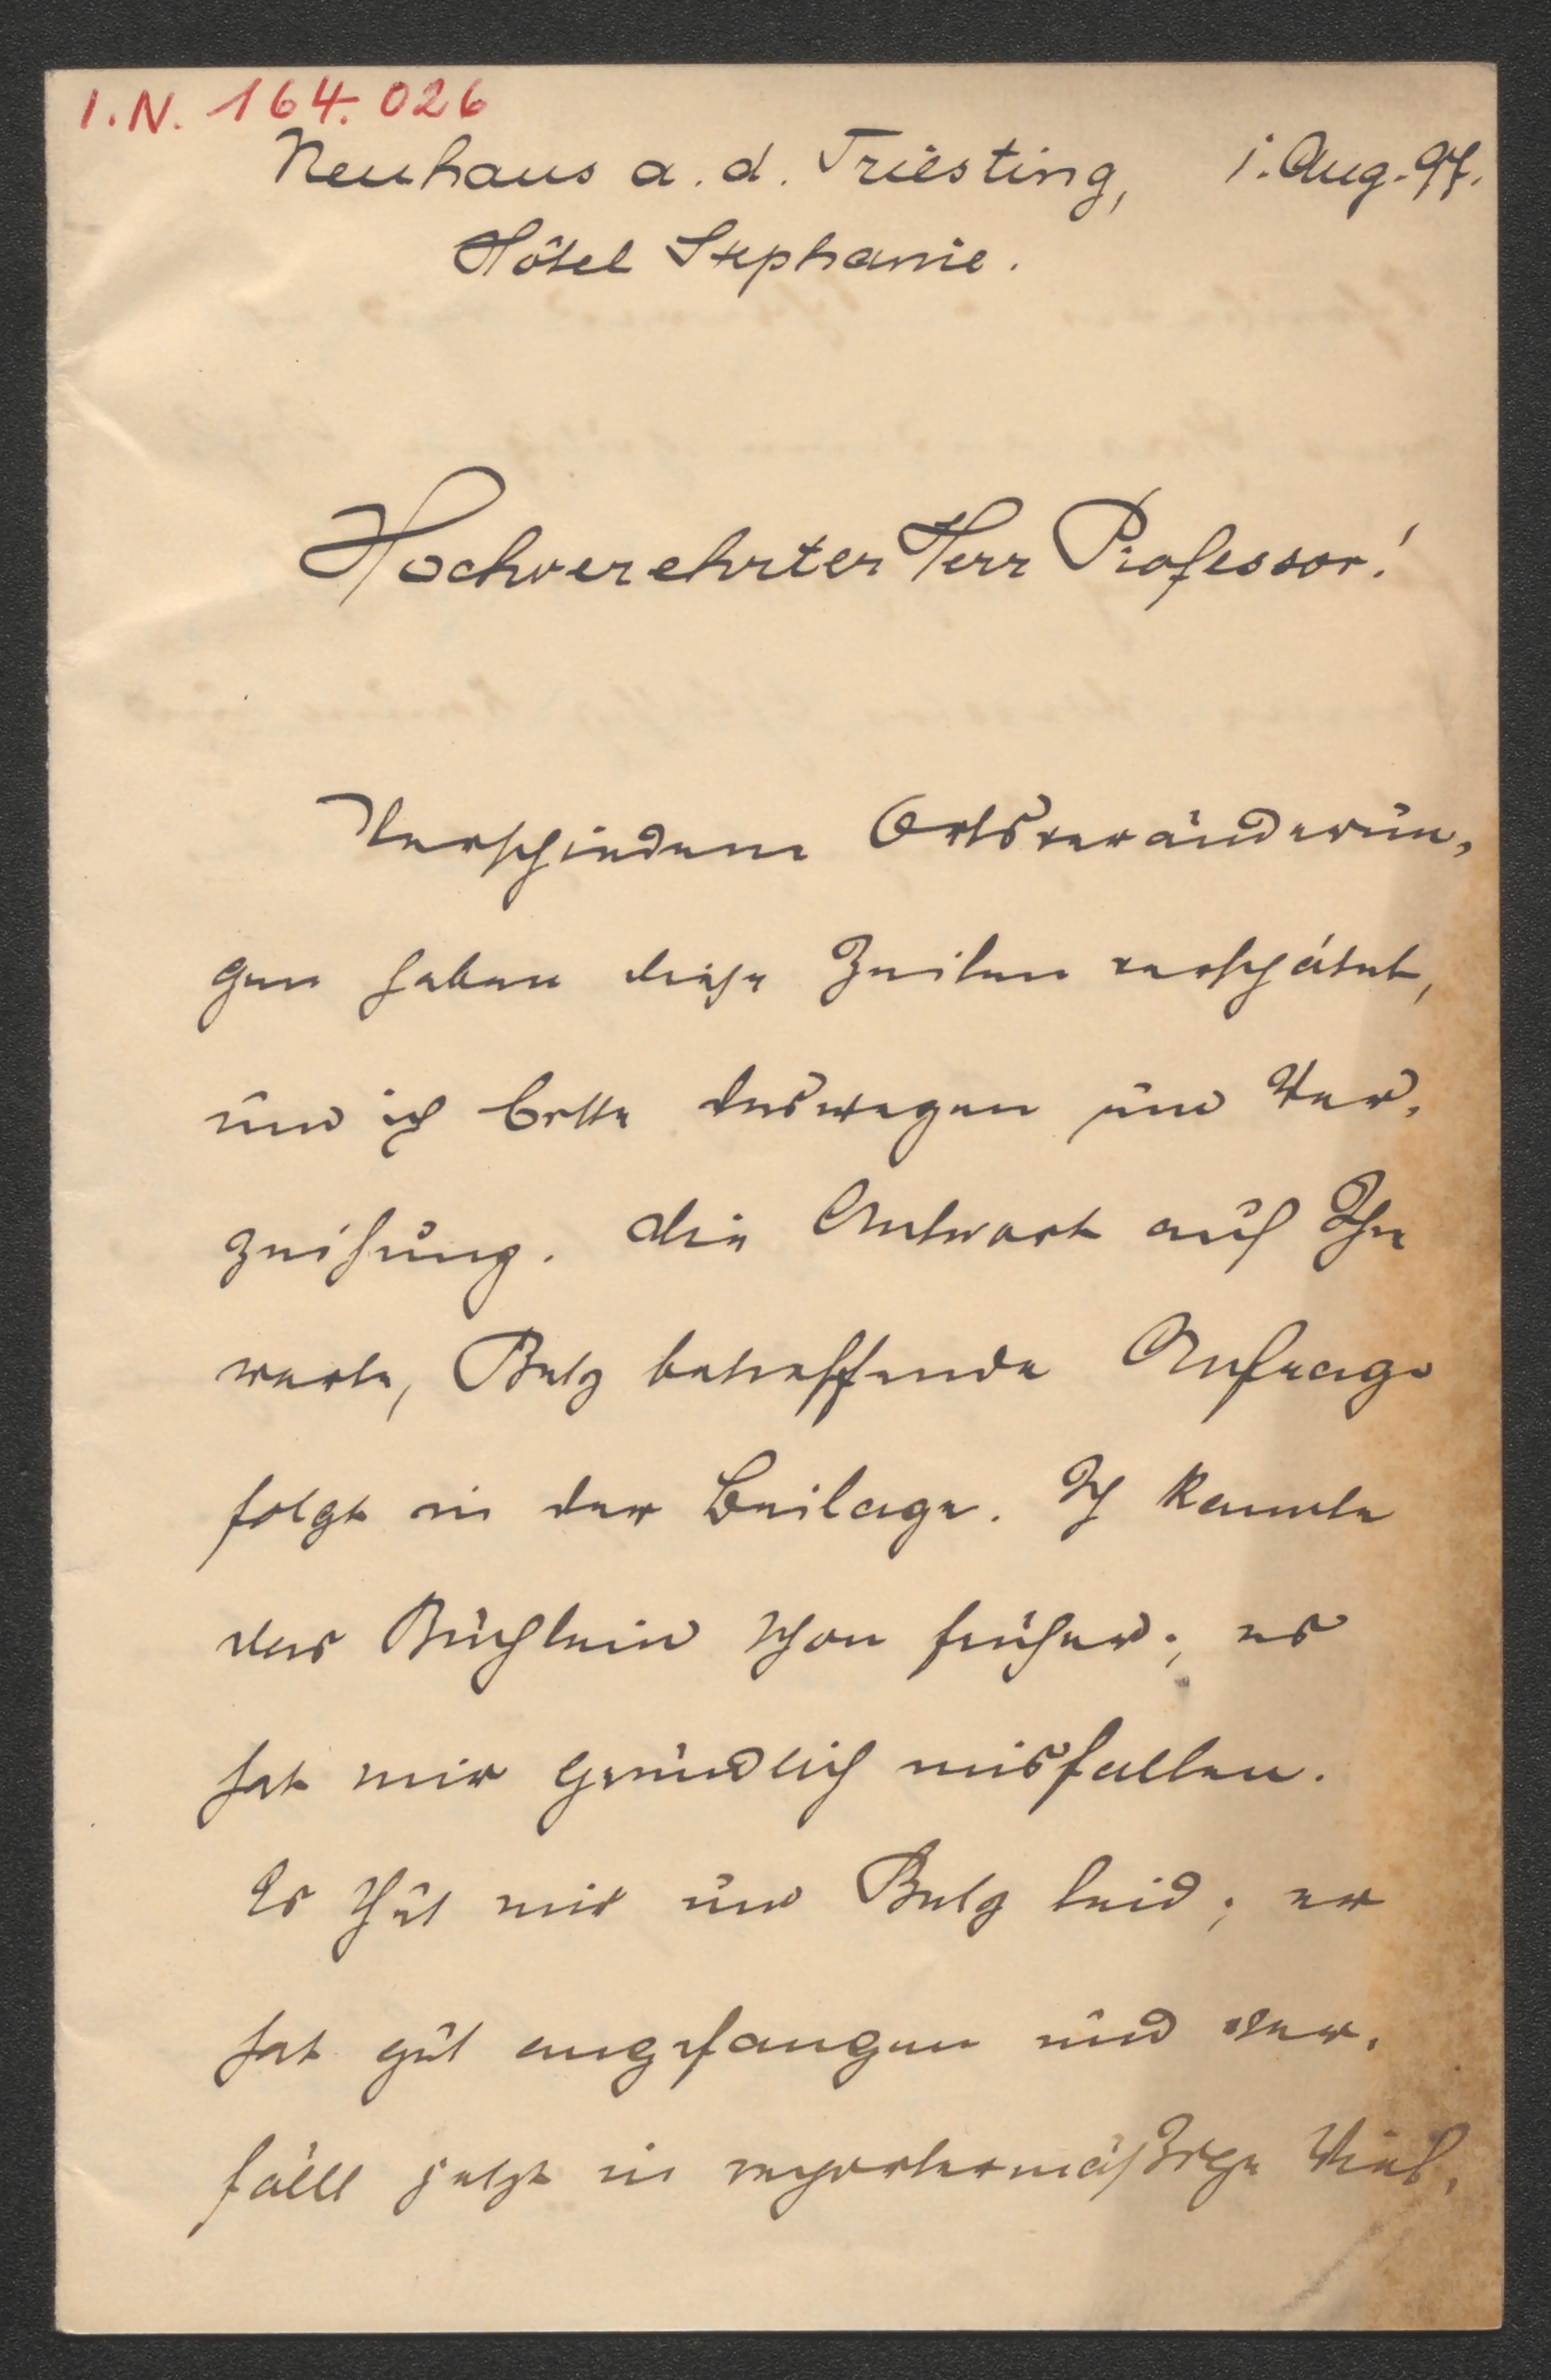 I.N. 164.026
Neuhaus a. d. Triesting, 1. Aug. 97.
Hôtel Stephanie.
Hochverehrter Herr Professor!
Verschiedene Ortsveränderun-
gen haben diese Zeilen verspätet,
und ich bitte deswegen um Ver-
zeihung. Die Antwort auf Ihre
werte, Betz betreffende Anfrage
folgt in der Beilage. Ich kannte
das Büchlein schon früher; es
hat mir gründlich misfallen.
Es thut mir um Betz leid; er
hat gut angefangen und ver-
fällt jetzt in reportermäßige Viel-